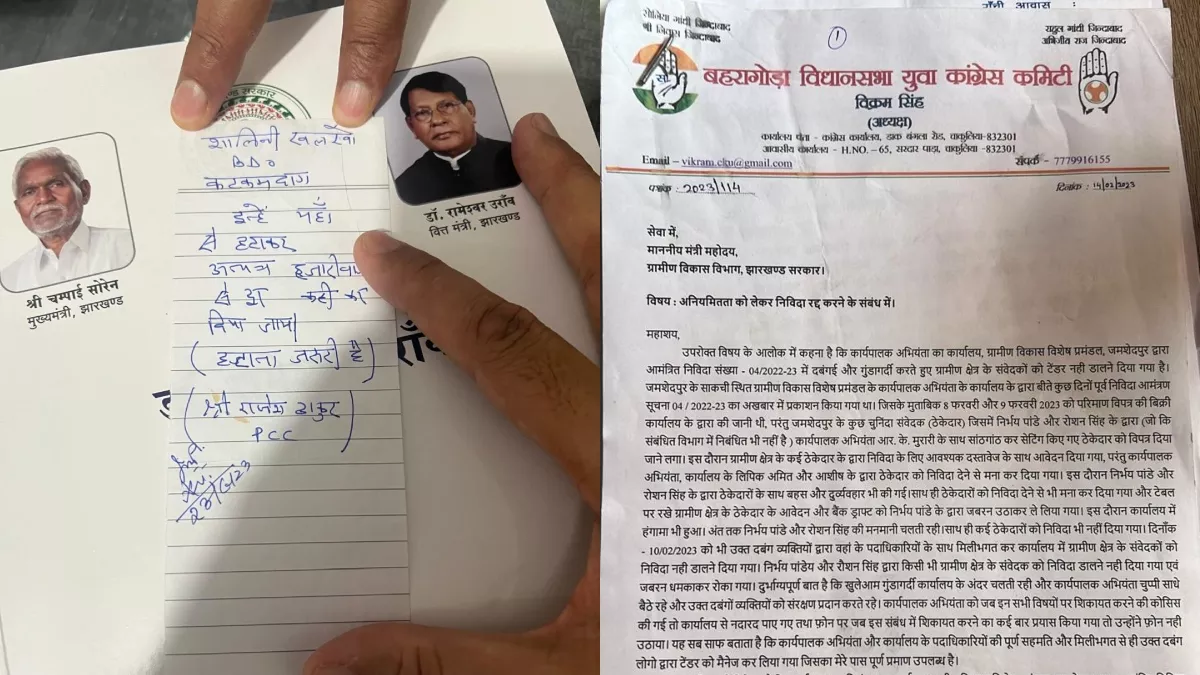 श्री चम्पाई सोरेन
मुख्यमंत्री, झारखण्ड
सरकार
डॉ. रामेश्वर उराँव
वित्त मंत्री, झारखण्ड
शालिनी खलखो
BDO
कटकमदाग
इन्हें यहाँ
से हटाकर
अन्यत्र
से
दिया जाय।
(हटाना जरुरी है)
(श्री राजेश ठाकुर
PCC)
र्गनी आवास :
सोनिया गांधी जिन्दाबाद
श्री निवास जिन्दाबाद
राहुल गांधी जिन्दाबाद
अभिजीत राज जिन्दाबाद
1
बहरागोड़ा विधानसभा युवा कांग्रेस कमिटी
विक्रम सिंह
(अध्यक्ष)
कार्यालय पता - कांग्रेस कार्यालय, डाक बंगला रोड, चाकुलिया-832301
आवासीय कार्यालय - H.NO. – 65, सरदार पाड़ा, चाकुलिया –832301
Email – vikram.cku@gmail.com संपर्क - 7779916155
पत्रांक : 2023/114 दिनांक : 14/02/2023
सेवा में,
माननीय मंत्री महोदय,
ग्रामीण विकास विभाग, झारखण्ड सरकार।
विषय : अनियमितता को लेकर निविदा रद्द करने के संबंध में।
महाशय,
उपरोक्त विषय के आलोक में कहना है कि कार्यपालक अभियंता का कार्यालय, ग्रामीण विकास विशेष प्रमंडल, जमशेदपुर द्वारा
आमंत्रित निविदा संख्या - 04/2022-23 में दबंगई और गुंडागर्दी करते हुए ग्रामीण क्षेत्र के संवेदकों को टेंडर नही डालने दिया गया है।
जमशेदपुर के साकची स्थित ग्रामीण विकास विशेष प्रमंडल के कार्यपालक अभियंता के कार्यालय के द्वारा बीते कुछ दिनों पूर्व निविदा आमंत्रण
सूचना 04 / 2022-23 का अखबार में प्रकाशन किया गया था। जिसके मुताबिक 8 फरवरी और 9 फरवरी 2023 को परिमाण विपत्र की बिक्री
कार्यालय के द्वारा की जानी थी, परंतु जमशेदपुर के कुछ चुनिंदा संवेदक (ठेकेदार) जिसमें निर्भय पांडे और रोशन सिंह के द्वारा (जो कि
संबंधित विभाग में निबंधित भी नहीं है ) कार्यपालक अभियंता आर. के. मुरारी के साथ सांठगांठ कर सेटिंग किए गए ठेकेदार को विपत्र दिया
जाने लगा। इस दौरान ग्रामीण क्षेत्र के कई ठेकेदार के द्वारा निविदा के लिए आवश्यक दस्तावेज के साथ आवेदन दिया गया, परंतु कार्यपालक
अभियंता, कार्यालय के लिपिक अमित और आशीष के द्वारा ठेकेदार को निविदा देने से मना कर दिया गया। इस दौरान निर्भय पांडे और
रोशन सिंह के द्वारा ठेकेदारों के साथ बहस और दुर्व्यवहार भी की गई।साथ ही ठेकेदारों को निविदा देने से भी मना कर दिया गया और टेबल
पर रखे ग्रामीण क्षेत्र के ठेकेदार के आवेदन और बैंक ड्राफ्ट को निर्भय पांडे के द्वारा जबरन उठाकर ले लिया गया। इस दौरान कार्यालय में
हंगामा भी हुआ। अंत तक निर्भय पांडे और रोशन सिंह की मनमानी चलती रही।साथ ही कई ठेकेदारों को निविदा भी नहीं दिया गया। दिनाँक
- 10/02/2023 को भी उक्त दबंग व्यक्तियों द्वारा वहां के पदाधिकारियों के साथ मिलीभगत कर कार्यालय में ग्रामीण क्षेत्र के संवेदकों को
निविदा नही डालने दिया गया। निर्भय पांडेय और रौशन सिंह द्वारा किसी भी ग्रामीण क्षेत्र के संवेदक को निविदा डालने नही दिया गया एवं
जबरन धमकाकर रोका गया। दुर्भाग्यपूर्ण बात है कि खुलेआम गुंडागर्दी कार्यालय के अंदर चलती रही और कार्यपालक अभियंता चुप्पी साधे
बैठे रहे और उक्त दबंगों व्यक्तियों को संरक्षण प्रदान करते रहे। कार्यपालक अभियंता को जब इन सभी विषयों पर शिकायत करने की कोसिस
की गई तो कार्यालय से नदारद पाए गए तथा फ़ोन पर जब इस संबंध में शिकायत करने का कई बार प्रयास किया गया तो उन्होंने फ़ोन नही
उठाया। यह सब साफ बताता है कि कार्यपालक अभियंता और कार्यालय के पदाधिकारियों की पूर्ण सहमति और मिलीभगत से ही उक्त दबंग
लोगो द्वारा टेंडर को मैनेज कर लिया गया जिसका मेरे पास पूर्ण प्रमाण उपलब्ध है।